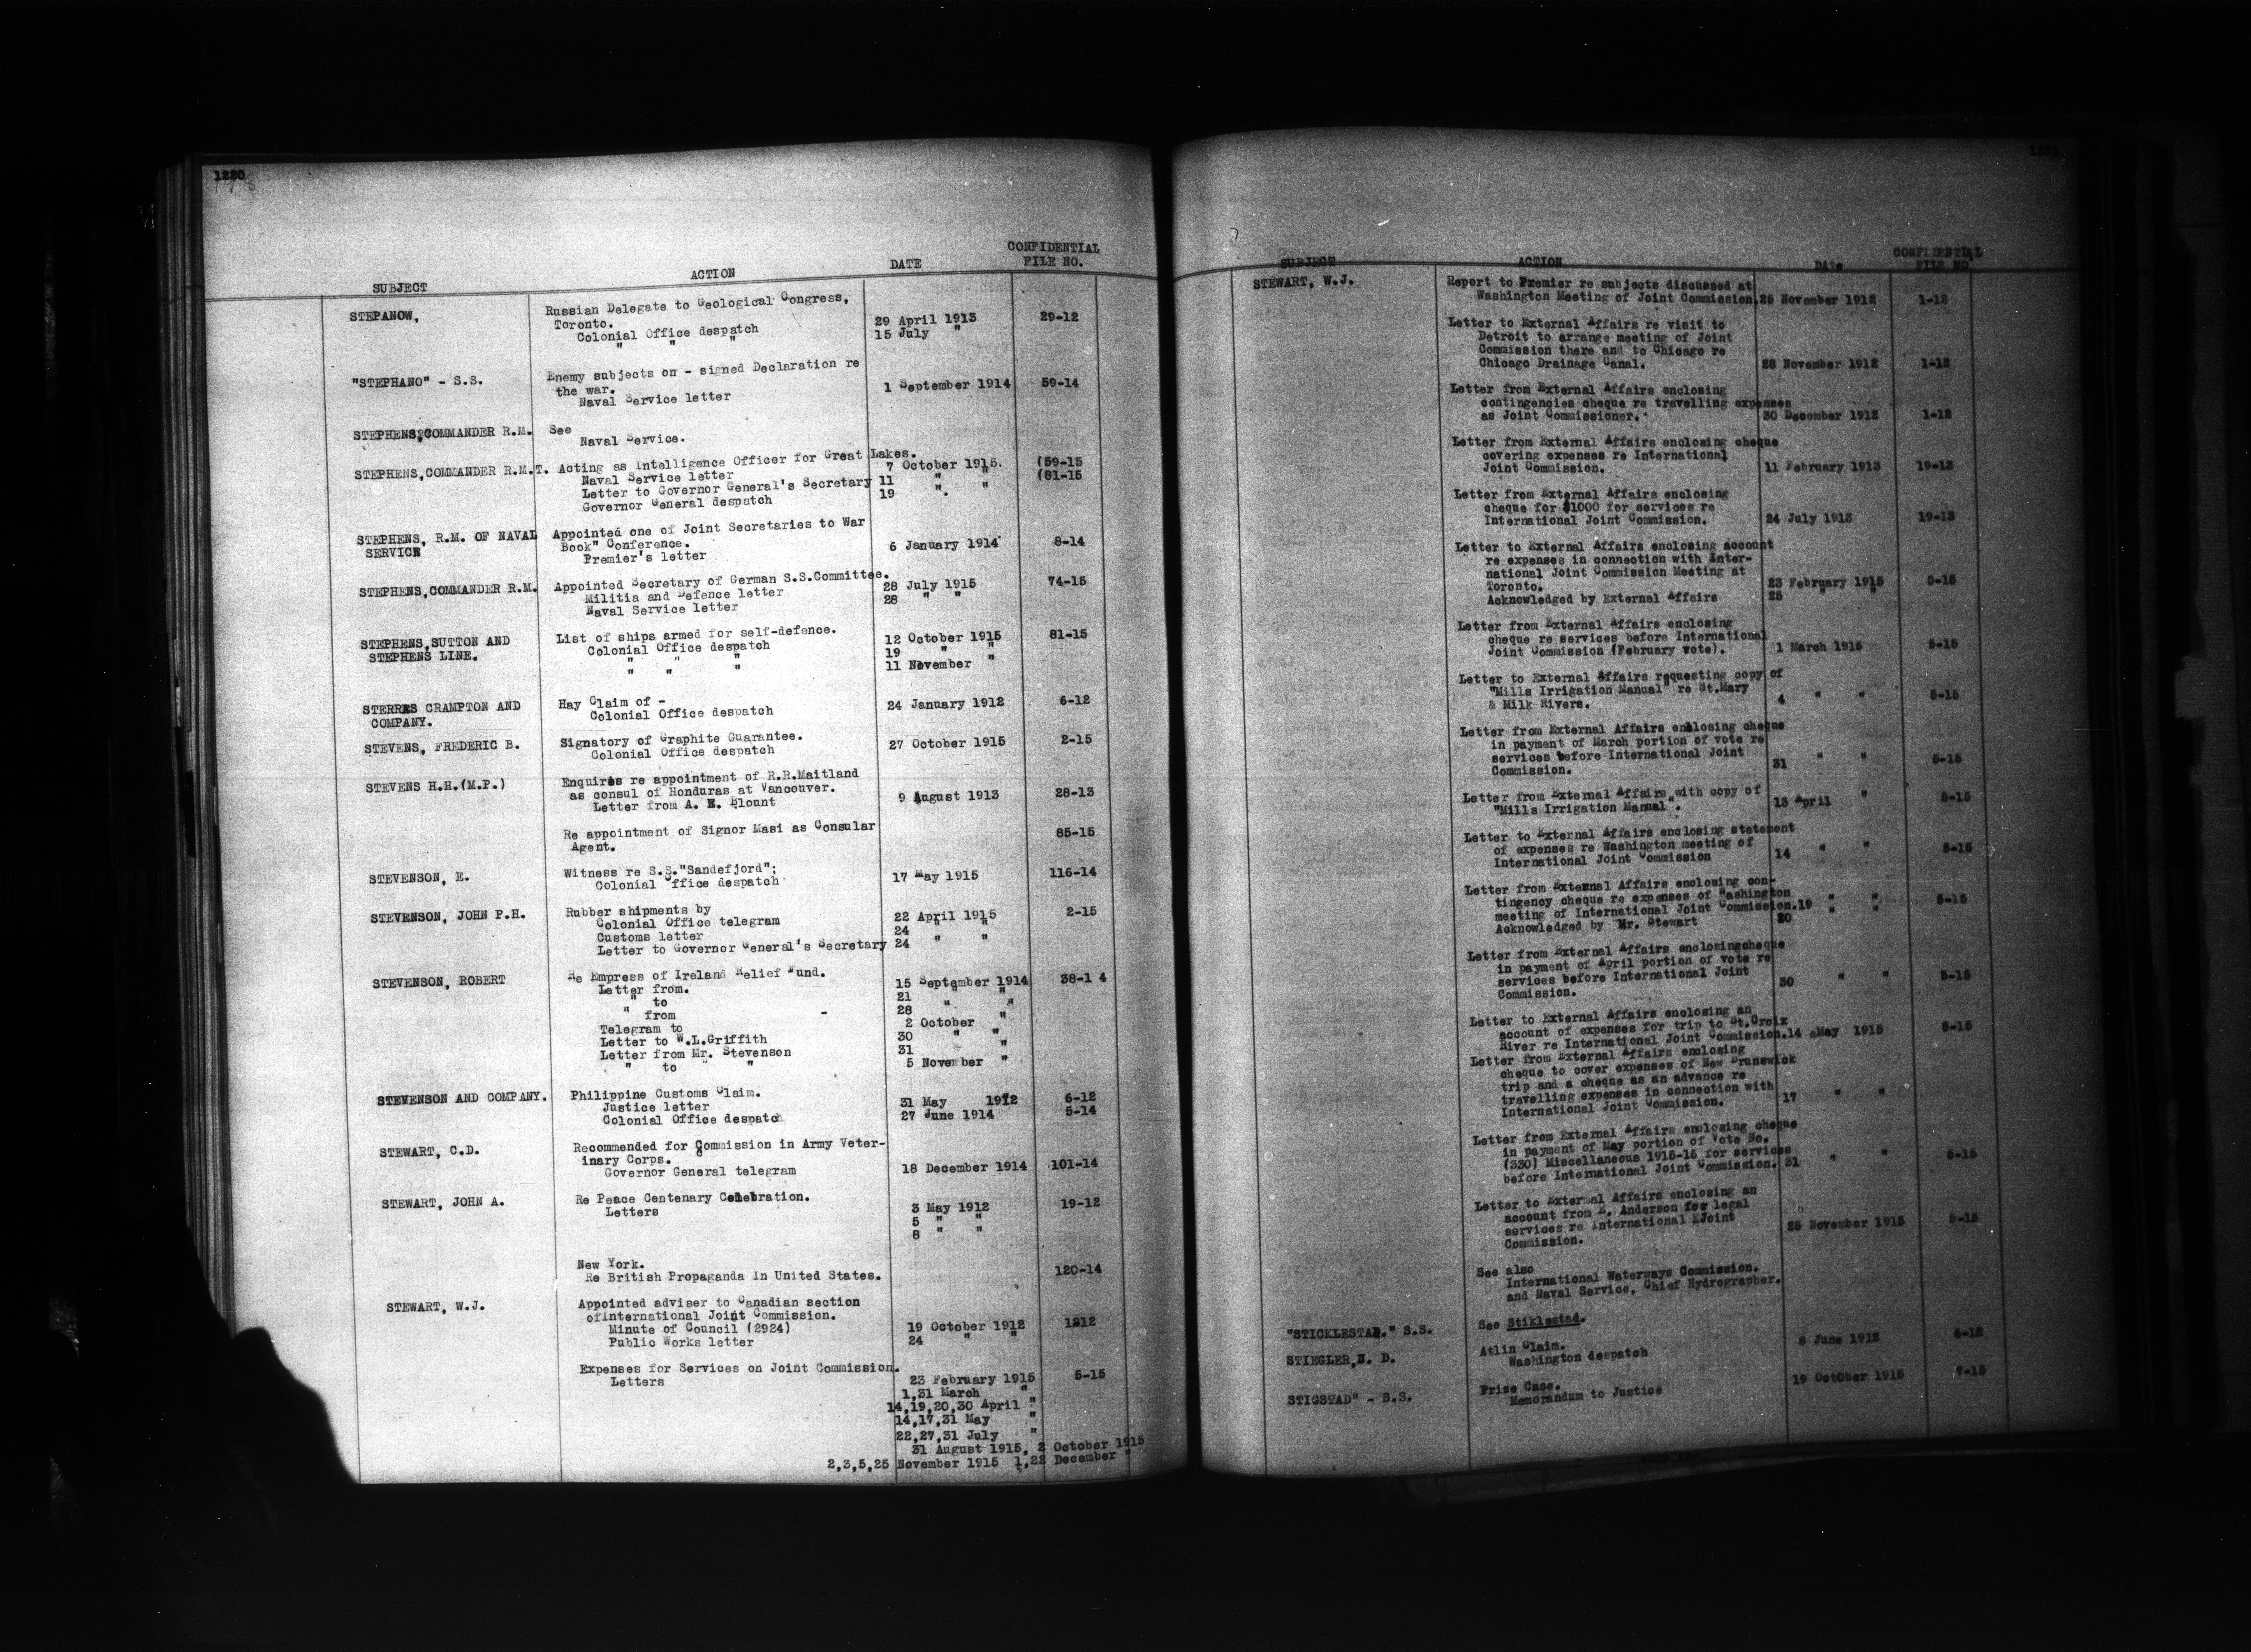 1220
SUBJECT ACTION DATE CONFIDENTIAL FILE NO.
STEPANOW, Russian Delegate to Geological Congress,
Toronto.
Colonial Office despatch 29 April 1913 29-12
" " " 15 July "
"STEPHANO" - S.S. Enemy subjects on - signed Declaration re
the war.
Naval Service letter 1 September 1914 59-14
STEPHENS, COMMANDER R.M. See
Naval Service.
STEPHENS, COMMANDER R.M.T. Acting as Intelligence Officer for Great Lakes.
Naval Service letter 7 October 1915. (59-15
Letter to Governor General's Secretary 11 " " (81-15
Governor General despatch 19 " "
STEPHENS, R.M. OF NAVAL SERVICE Appointed one of Joint Secretaries to War
Book" Conference.
Premier's letter 6 January 1914 8-14
STEPHENS, COMMANDER R.M. Appointed Secretary of German S.S.Committee.
Militia and Defence letter 28 July 1915 74-15
Naval Service letter 28 " "
STEPHENS, SUTTON AND STEPHENS LINE. List of ships armed for self-defence.
Colonial Office despatch 12 October 1915 81-15
" " " 19 " "
" " " 11 November "
STERRES CRAMPTON AND COMPANY. Hay Claim of -
Colonial Office despatch 24 January 1912 6-12
STEVENS, FREDERIC B. Signatory of Graphite Guarantee.
Colonial Office despatch 27 October 1915 2-15
STEVENS H.H.(M.P.) Enquires re appointment of R.R.Maitland
as consul of Honduras at Vancouver.
Letter from A. E. Blount 9 August 1913 28-13
Re appointment of Signor Masi as Consular
Agent. 85-15
STEVENSON, E. Witness re S.S."Sandefjord";
Colonial Office despatch 17 May 1915 116-14
STEVENSON, JOHN P.H. Rubber shipments by
Colonial Office telegram 22 April 1915 2-15
Customs letter 24 " "
Letter to Governor General's Secretary 24 " "
STEVENSON, ROBERT Re Empress of Ireland Relief Fund.
Letter from. 15 September 1914 38-1 4
" to 21 " "
" from 28 " "
Telegram to 2 October "
Letter to W.L.Griffith 30 " "
Letter from Mr. Stevenson 31 "
" to " 5 November "
STEVENSON AND COMPANY. Philippine Customs Claim.
Justice letter 31 May 1912 6-12
Colonial Office despatch 27 June 1914 5-14
STEWART, C.D. Recommended for Commission in Army Veter-
inary Corps.
Governor General telegram 18 December 1914 101-14
STEWART, JOHN A. Re Peace Centenary Celebration.
Letters 3 May 1912 19-12
5 " "
8 " "
New York.
Re British Propaganda in United States. 120-14
STEWART, W.J. Appointed adviser to Canadian section
ofInternational Joint Commission.
Minute of Council (2924) 19 October 1912 1212
Public Works letter 24 " "
Expenses for Services on Joint Commission.
Letters 23 February 1915 5-15
1,31 March "
14,19,20,30 April "
14,17,31 May
22,27,31 July "
31 August 1915, 2 October 1915
2,3,5,25 November 1915 1,22 December "
SUBJECT ACTION DATE CONFIDENTIAL FILE NO.
STEWART, W.J. Report to Premier re subjects discussed at
Washington Meeting of Joint Commission. 25 November 1912 1-12
Letter to External Affairs re visit to
Detroit to arrange meeting of Joint
Commission there and to Chicago re
Chicago Drainage Canal. 28 November 1912 1-12
Letter from External Affairs enclosing
contingencies cheque re travelling expenses
as Joint Commissioner. 30 December 1912 1-12
Letter from External Affairs enclosing cheque
covering expenses re International
Joint Commission. 11 February 1913 19-13
Letter from External Affairs enclosing
cheque for $1000 for services re
International Joint Commission. 24 July 1913 19-13
Letter to External Affairs enclosing account
re expenses in connection with Inter-
national Joint Commission Meeting at
Toronto. 23 February 1915 5-15
Acknowledged by External Affairs 25 " "
Letter from External Affairs enclosing
cheque re services before International
Joint Commission (February vote). 1 March 1915 5-15
Letter to External Affairs requesting copy of
"Mills Irrigation Manual" re St.Mary
& Milk Rivers. 4 " " 5-15
Letter from External Affairs enblosing cheque
in payment of March portion of vote re
services before International Joint
Commission. 31 " " 5-15
Letter from External Affairs with copy of
"Mills Irrigation Manual". 13 April " 5-15
Letter to External Affairs enclosing statement
of expenses re Washington meeting of
International Joint Commission 14 " " 5-15
Letter from External Affairs enclosing con-
tingency cheque re expenses of Washington
meeting of International Joint Commission. 19 " " 5-15
Acknowledged by Mr. Stewart 20 " "
Letter from External Affairs enclosingcheque
in payment of April portion of vote re
services before International Joint
Commission. 30 " " 5-15
Letter to External Affairs enclosing an
account of expenses for trip to St.Croix
River re International Joint Commission. 14 May 1915 5-15
Letter from External Affairs enclosing
cheque to cover expenses of New Brunswick
trip and a cheque as an advance re
travelling expenses in connection with
International Joint Commission. 17 " "
Letter from External Affairs enclosing cheque
in payment of May portion of Vote No.
(330) Miscellaneous 1915-16 for services
before International Joint Commission. 31 " " 5-15
Letter to External Affairs enclosing an
account from E. Anderson for legal
services re International Joint
Commission. 25 November 1915 5-15
See also
International Waterways Commission.
and Naval Service, Chief Hydrographer.
"STICKLESTAD." S.S. See Stiklestad.
STIEGLER,N. D. Atlin Claim.
Washington despatch 8 June 1912 6-12
STIGSTAD" - S.S. Prize Case.
Memorandum to Justice 19 October 1915 7-15